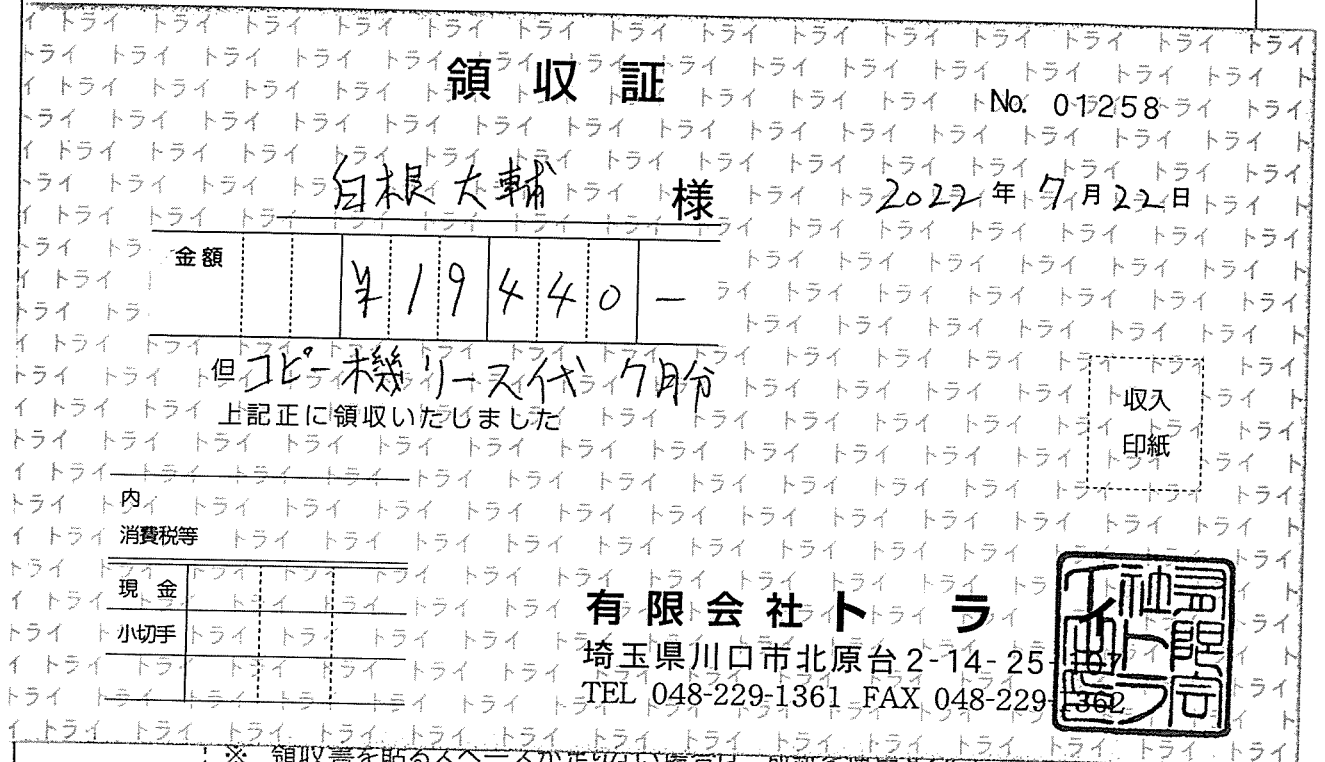 領収証
No. 01258
白根大輔 様
2022年7月22日
金額 ¥19440-
但 コピー機リース代 7月分
上記正に領収いたしました
収入
印紙
内
消費税等
現金
小切手
有限会社トライ
埼玉県川口市北原台2-14-25-107
TEL 048-229-1361 FAX 048-229-1362
有限会社トライ